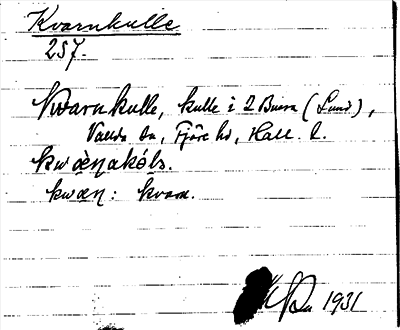 Kvarnkulle
257.
Kvarnkulle, kulle i 2 Buera (Lund),
Vallda sn, Fjäre hd, Hall. l.
kwæ̀nakóls.
kwæn: kvarn.
1931